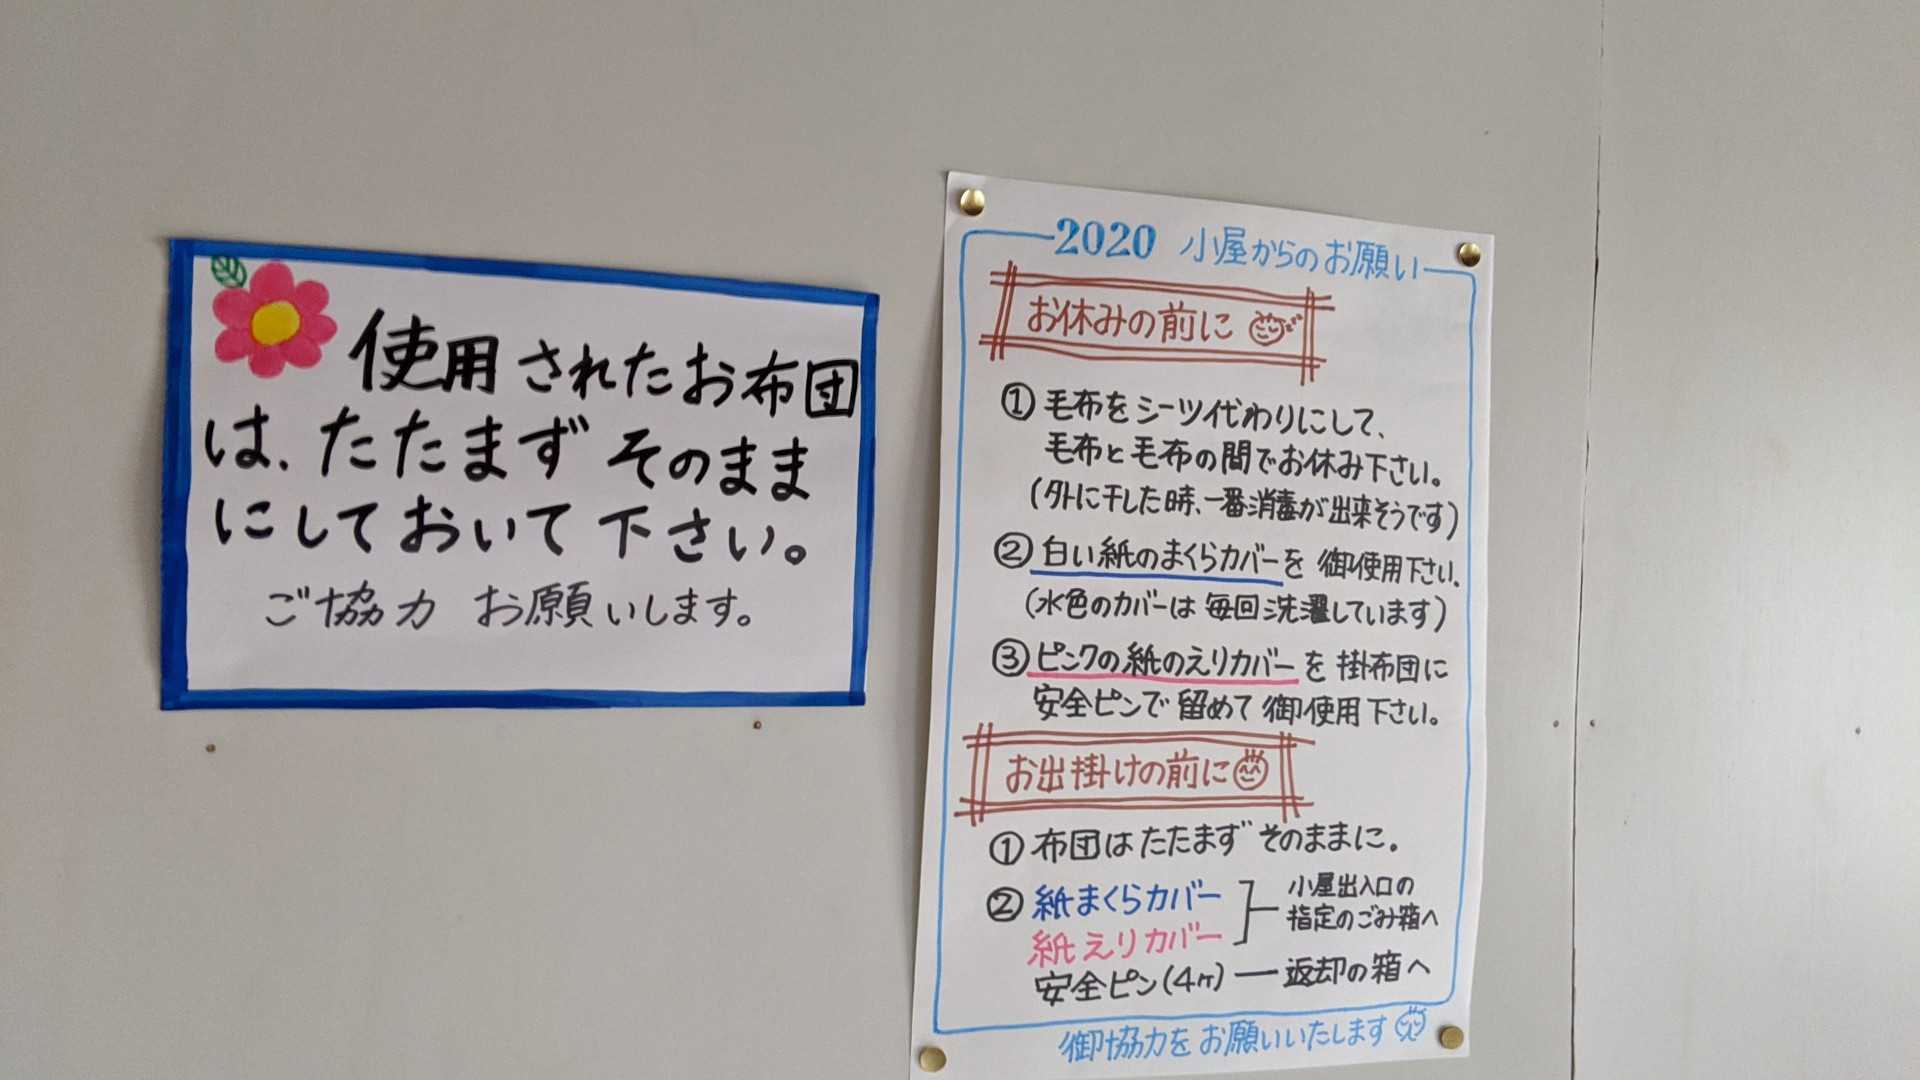 使用されたお布団
は、たたまずそのまま
にしておいて下さい。
ご協力 お願いします。
2020 小屋からのお願い
お休みの前に
① 毛布をシーツ代わりにして、
毛布と毛布の間でお休み下さい。
(外に干した時、一番消毒が出来そうです)
② 白い紙のまくらカバーを 御使用下さい。
(水色のカバーは毎回洗濯しています)
③ ピンクの紙のえりカバーを 掛布団に
安全ピンで留めて御使用下さい。
お出掛けの前に
① 布団はたたまずそのままに。
② 紙まくらカバー
紙えりカバー
小屋出入口の
指定のごみ箱へ
安全ピン(4ヶ) ― 返却の箱へ
御協力をお願いいたします